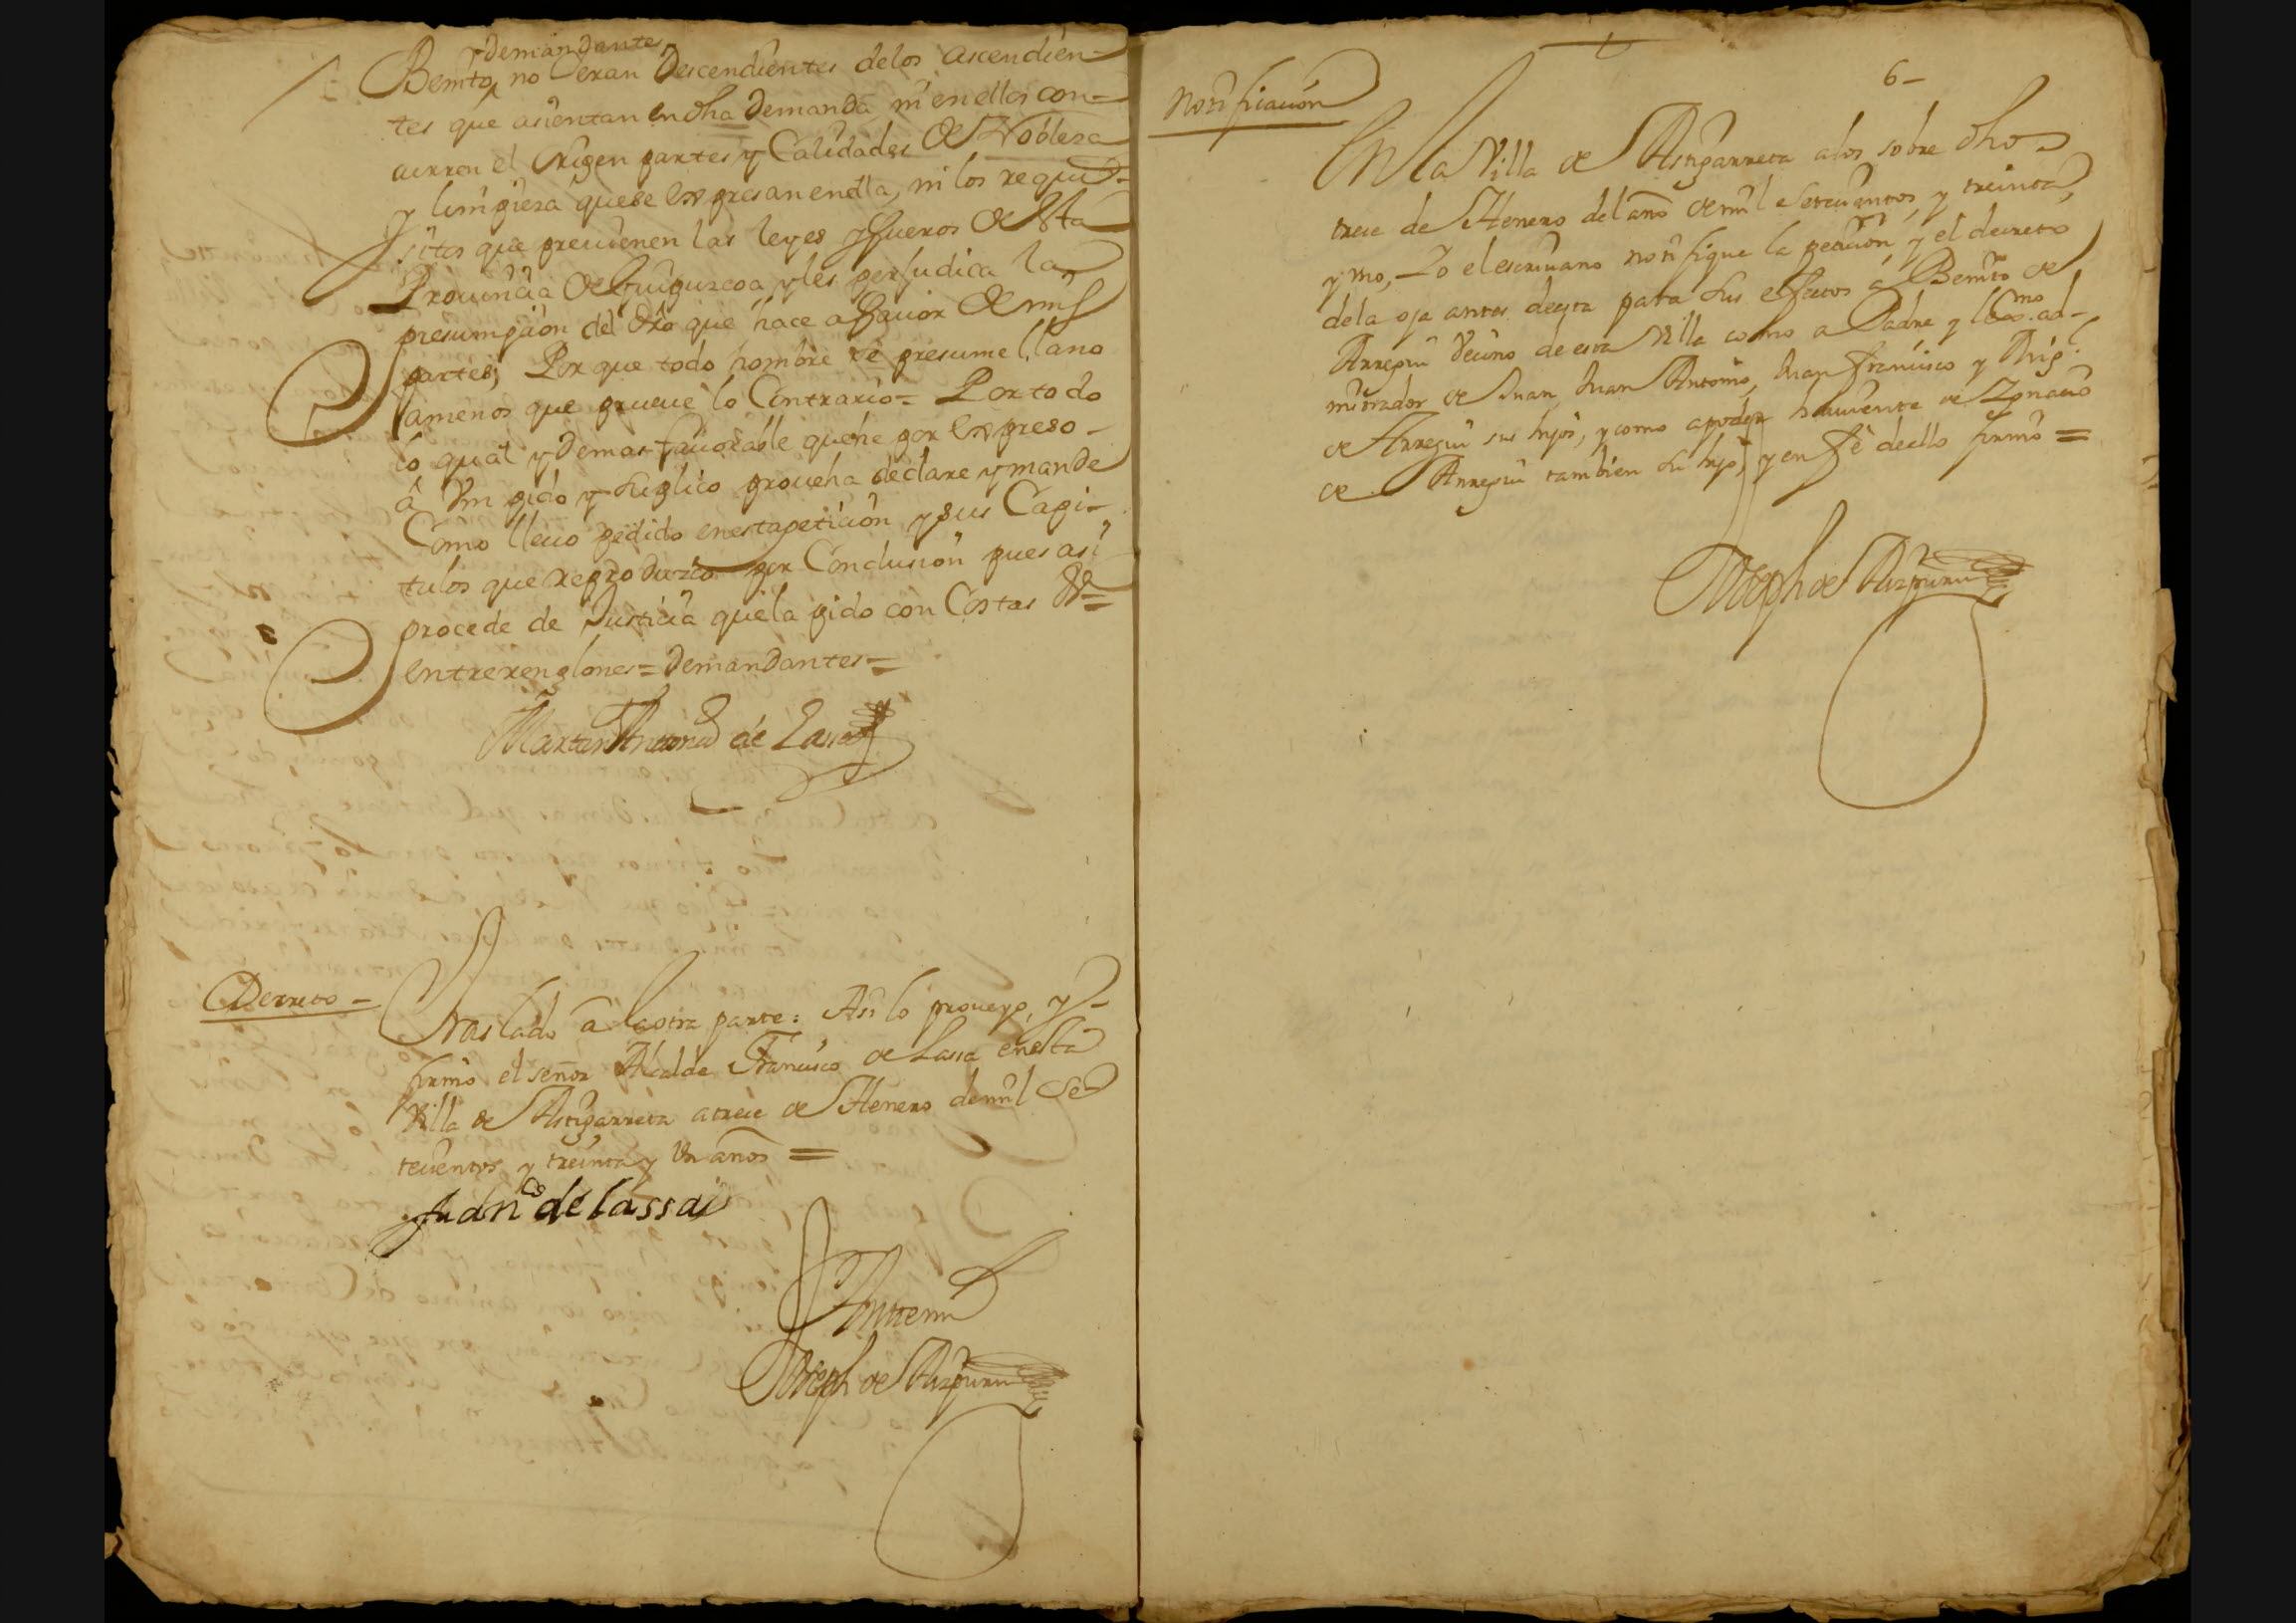 demandantes
Benito, no seran Descendientes delos ascendien-
tes que asientan en dha demanda, ni en ellos con-
curren el Origen partes y Calidades de Nobleza
y limpieza quese expresan enella, ni los requi-
sitos que preuienen las leyes y fueros de Esta
Prouincia de Guipuzcoa y les perjudica la
presumpcion del dro que hace afauor de mis
partes; Por que todo hombre se presume llano
amenos que prueue lo Contrario= Por todo
lo qual y demas fauorable que he por expreso-
á Vm pido y suplico proueha declare y mande
Como lleuo pedido en esta peticion y sus Capi-
tulos que reproduzco por Conclusion pues así
procede de Justicia quela pido con Costas &=
entrerenglones= demandantes=
Martin Antonio de Lassa
Decreto-
Traslado a la otra parte: Asi lo proueyo, y-
firmo el señor Alcalde Francisco de Lassa en esta
Villa de Astigarreta a trece de Henero de mil Se
tecientos y treinta y Un años =
Franco de lassa
Ante mi
Joseph de Aizpuru
6-
Notificacion
En la Villa de Astigarreta a los sobre dhos
trece de Henero del año de mil setecientos, y treinta,
y uno, Yo el escriuano notifique la peticion, y el decreto
dela oja antes desta para sus efectos á Benito de
Arregui Vecino de esta Villa como a Padre y lexmo. ad-
ministrador de Juan, Juan Antonio, Juan Francisco y
de Arregui sus hijos, y como apoder hauiente de Ignacio
de Arregui tambien su hijo, y en fé dello firmé =
Joseph de Aizpuru